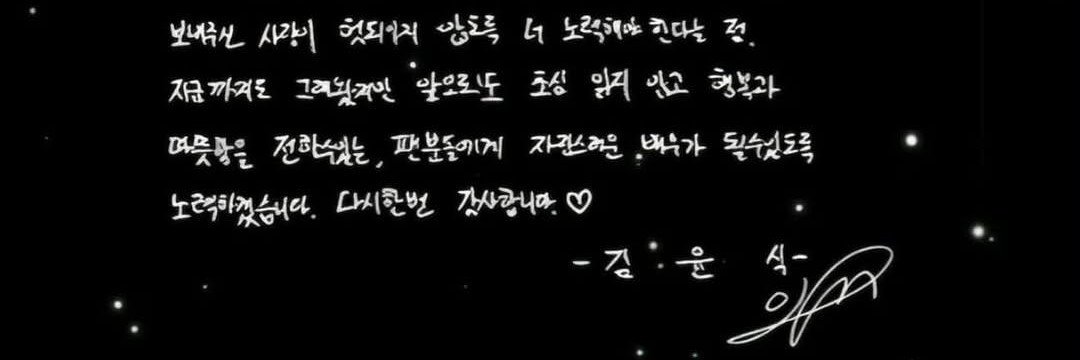 보내주신 사랑이 헛되이지 않도록 더 노력해야 한다는 점.
지금까지도 그래왔지만 앞으로도 초심 잃지 않고 행복과
따뜻함을 전하수있는, 팬분들에게 자랑스러운 배우가 될수있도록
노력하겠습니다. 다시한번 감사합니다.♡
- 김 윤 식 -